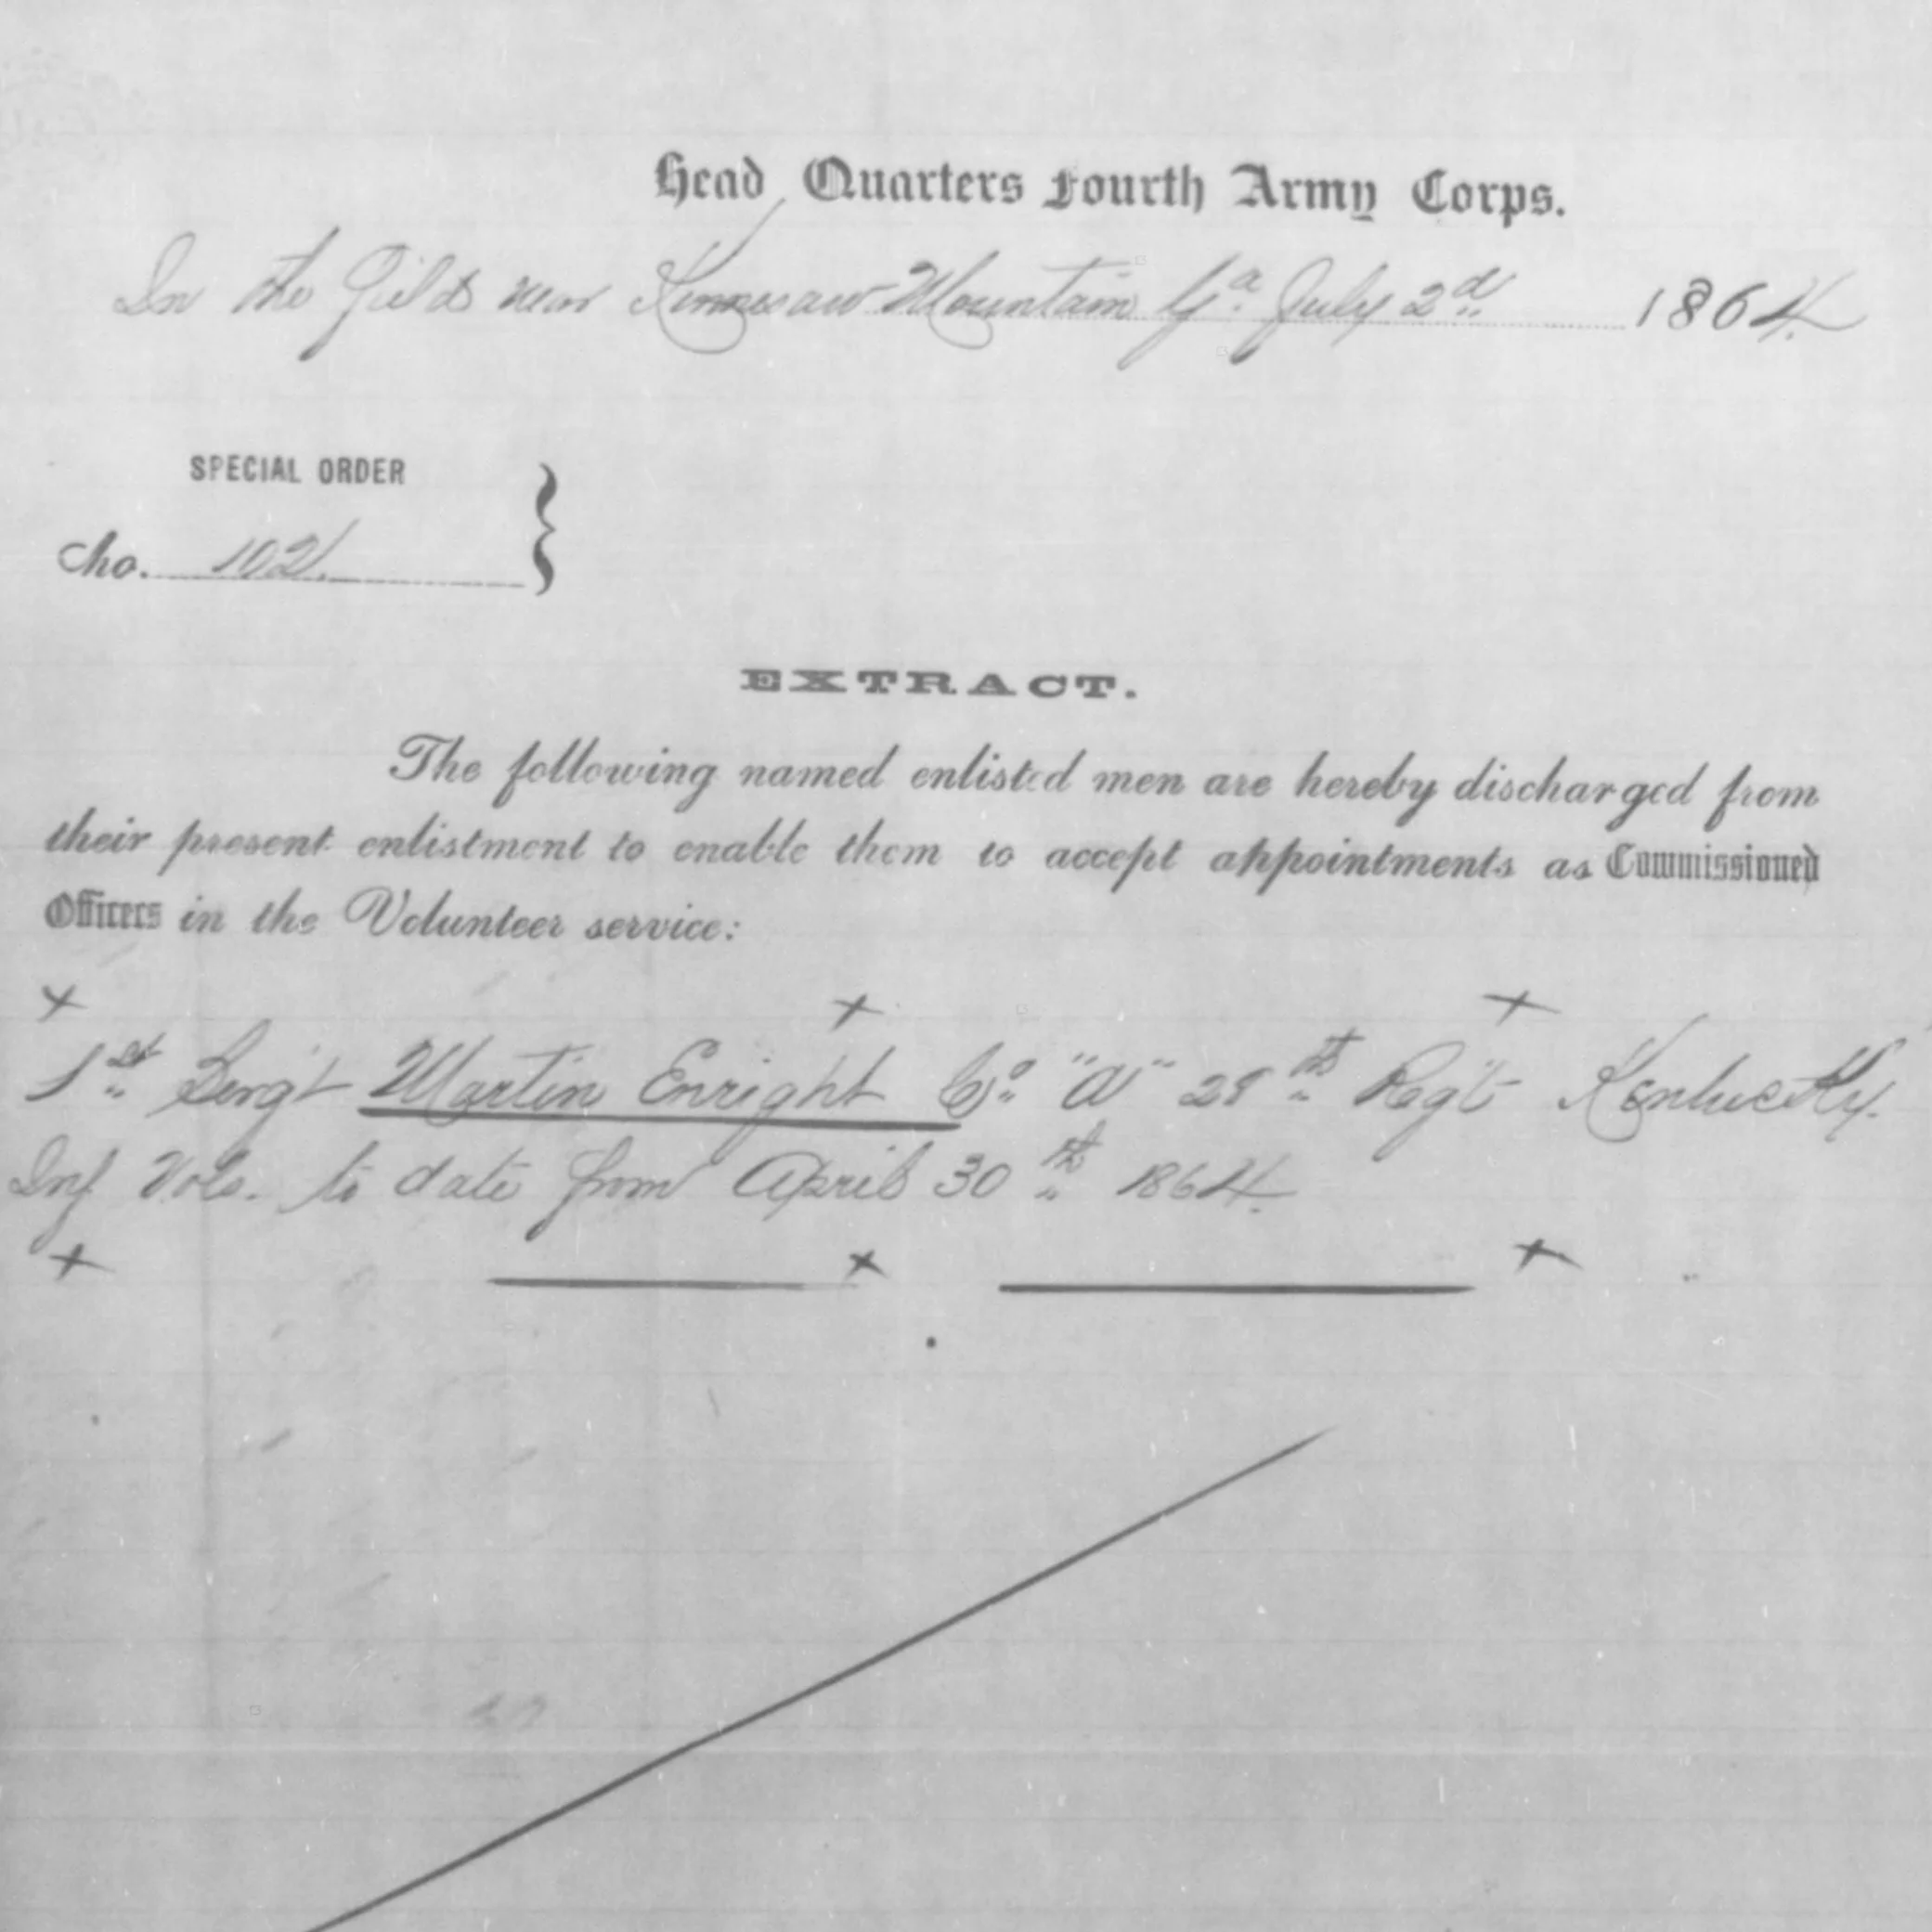 Head Quarters Fourth Army Corps.
In the Field near Kennesaw Mountain Ga. July 2d 1864.
SPECIAL ORDER
No. 102.
EXTRACT.
The following named enlisted men are hereby discharged from
their present enlistment to enable them to accept appointments as Commissioned
Officers in the Volunteer service:
x x x
1st Sergt Martin Enright Co. "A" 28th Regt Kentucky
Inf Vols. to date from April 30th 1864.
x x x